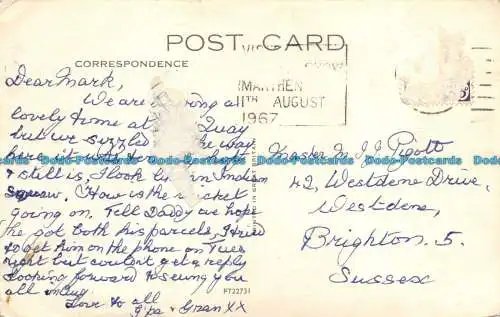 POST CARD
CORRESPONDENCE
MARTHEN
11TH AUGUST
1967
Dear Mark,
We are having a
lovely time at Quay
but we sizzled the way
here it was so
& still is, I look like an Indian
Squaw. How is the cricket
going on. Tell Daddy we hope
he got both his parcels, I tried
to get him on the phone on Tues
night but couldn't get a reply
Looking forward to seeing you
all
Love to all
G'pa & Gran XX
Master M. J. J. Pigott
42, Westdene Drive,
Westdene,
Brighton. 5.
Sussex
PT22731
Dodo-Postcards Dodo-Postcards Dodo-Postcards Dodo-Postcards